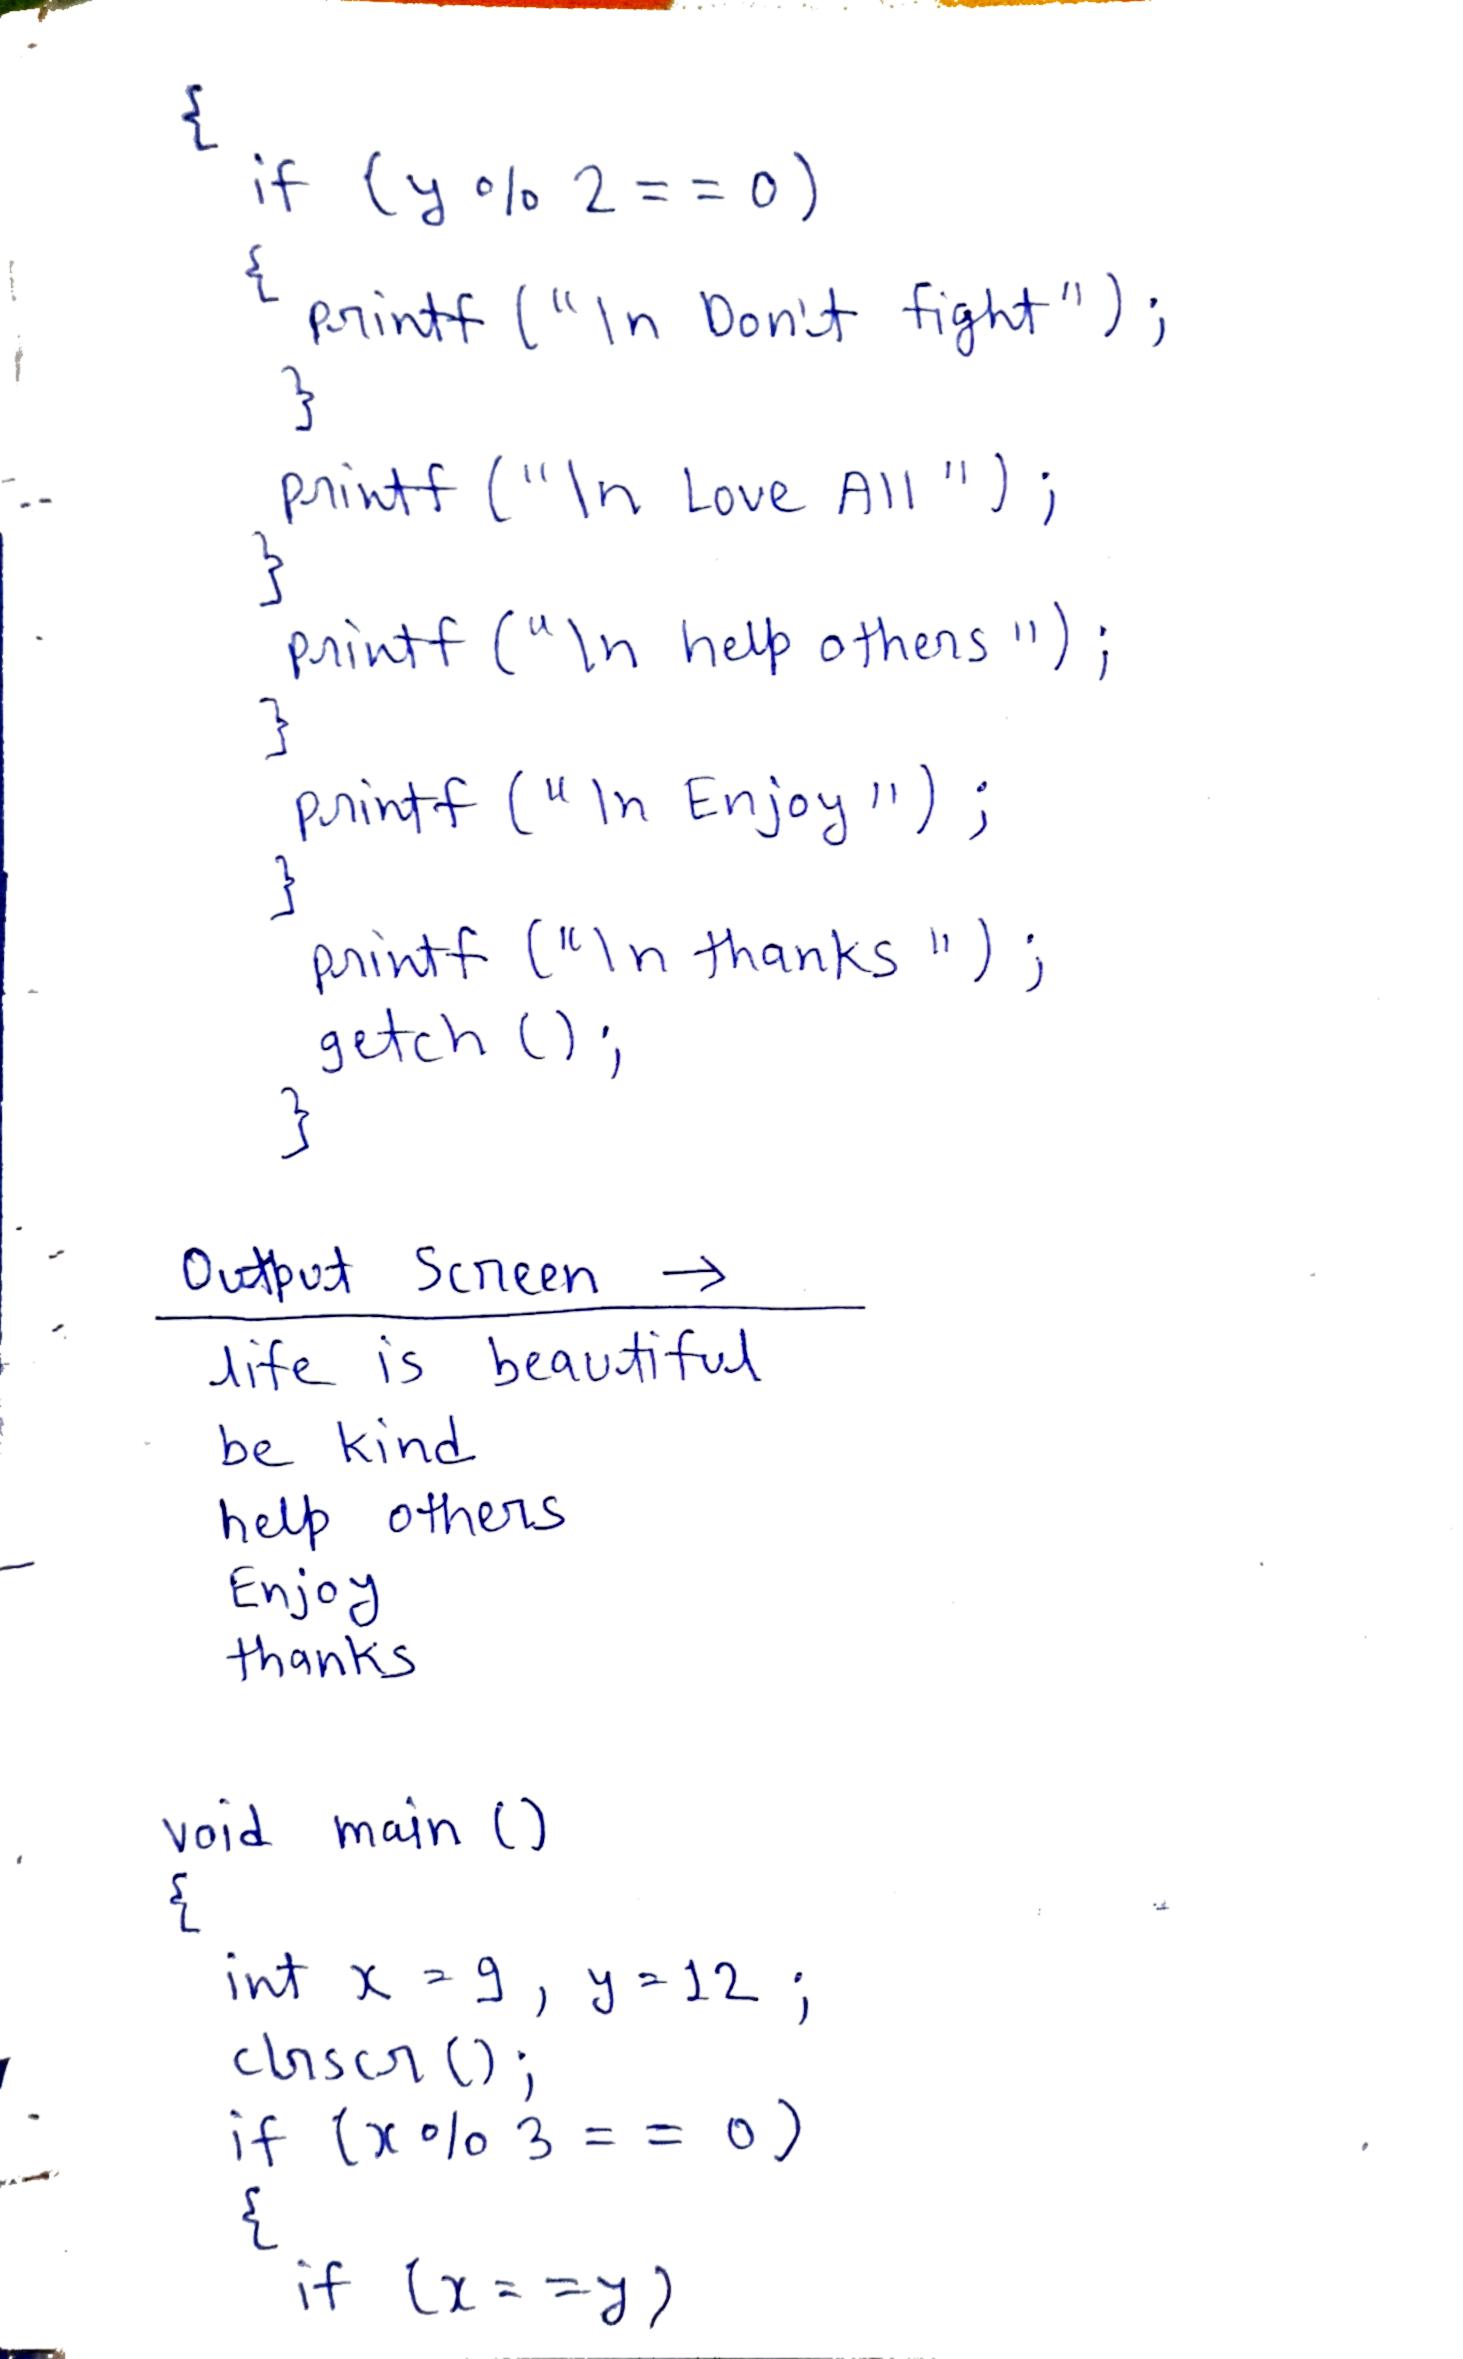 {
if (y % 2 == 0)
{
printf ("\n Don't fight");
}
printf ("\n Love All");
}
printf ("\n help others");
}
printf ("\n Enjoy");
}
printf ("\n thanks");
getch ();
}
Output Screen →
life is beautiful
be kind
help others
Enjoy
thanks
void main ()
{
int x = 9, y = 12;
clrscr ();
if (x % 3 == 0)
{
if (x == y)